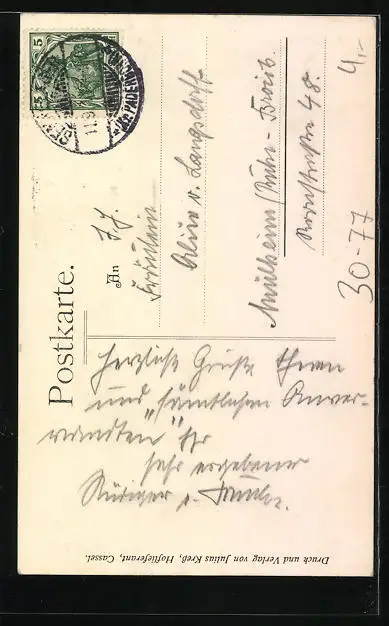 Postkarte.
An
Fräulein
v. Langsdorff
Mülheim /Ruhr - Broich
48.
Herzliche Grüße Ihnen
und "sämtlichen Anver-
wandten" Ihr
sehr ergebener
Rüdiger v.
Druck und Verlag von Julius Kreß, Hoflieferant, Cassel.
5
5
4,-
30-77